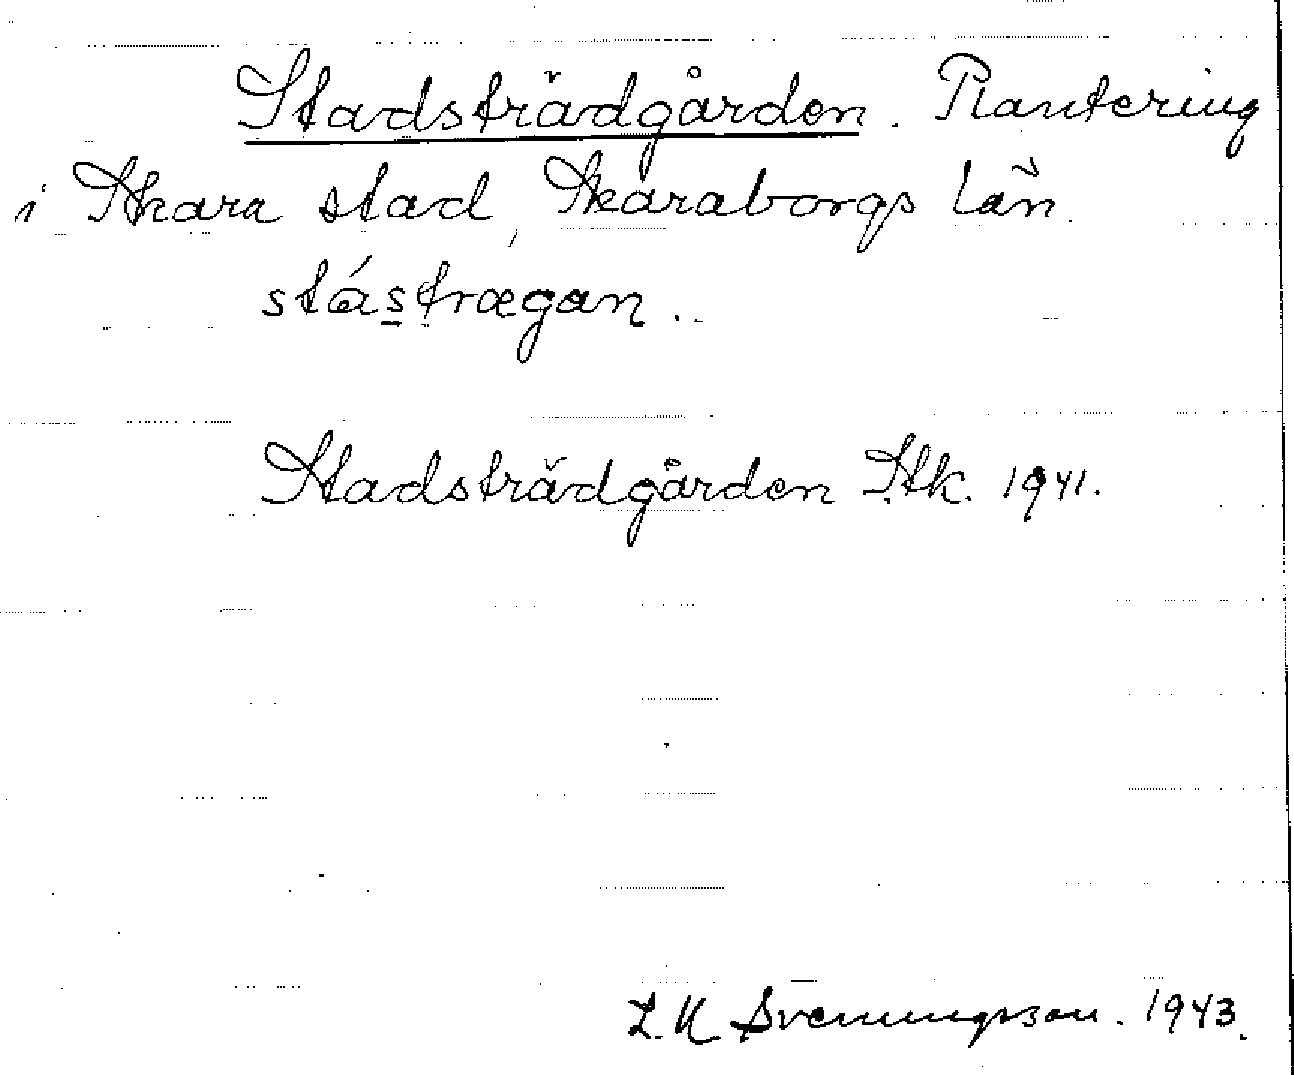 Stadsträdgården. Plantering
i Skara stad, Skaraborgs län.
stás̲trægan.
Stadsträdgården Stk. 1941.
L. K Svenningson. 1943.